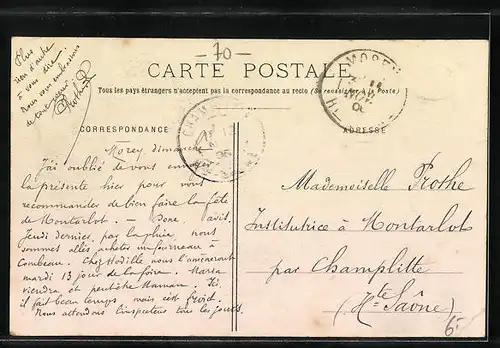 70
Plus
rien d'autre
à vous dire
Nous vous embrassons
de tout cœur
CARTE POSTALE
Tous les pays étrangers n'acceptent pas la correspondance au recto (Se renseigner à la Poste)
CORRESPONDANCE
ADRESSE
MOREY
CHAM
Morey dimanche
J'ai oublié de vous envoyer
la présente hier pour vous
recommander de bien faire la fête
de Montarlot. — Done avis.
Jeudi dernier par la pluie, nous
sommes allés acheter un fourneau à
Combeau. Chez Hodille nous l'amènerait
mardi 13 jour de la foire. Maria
viendra et peut-être Maman. Ici,
il fait beau temps, mais c'est froid.
Nous attendons l'inspecteur tous les jours.
Mademoiselle Prothe
Institutrice à Montarlot
par Champlitte
(Hte Saône)
6.-